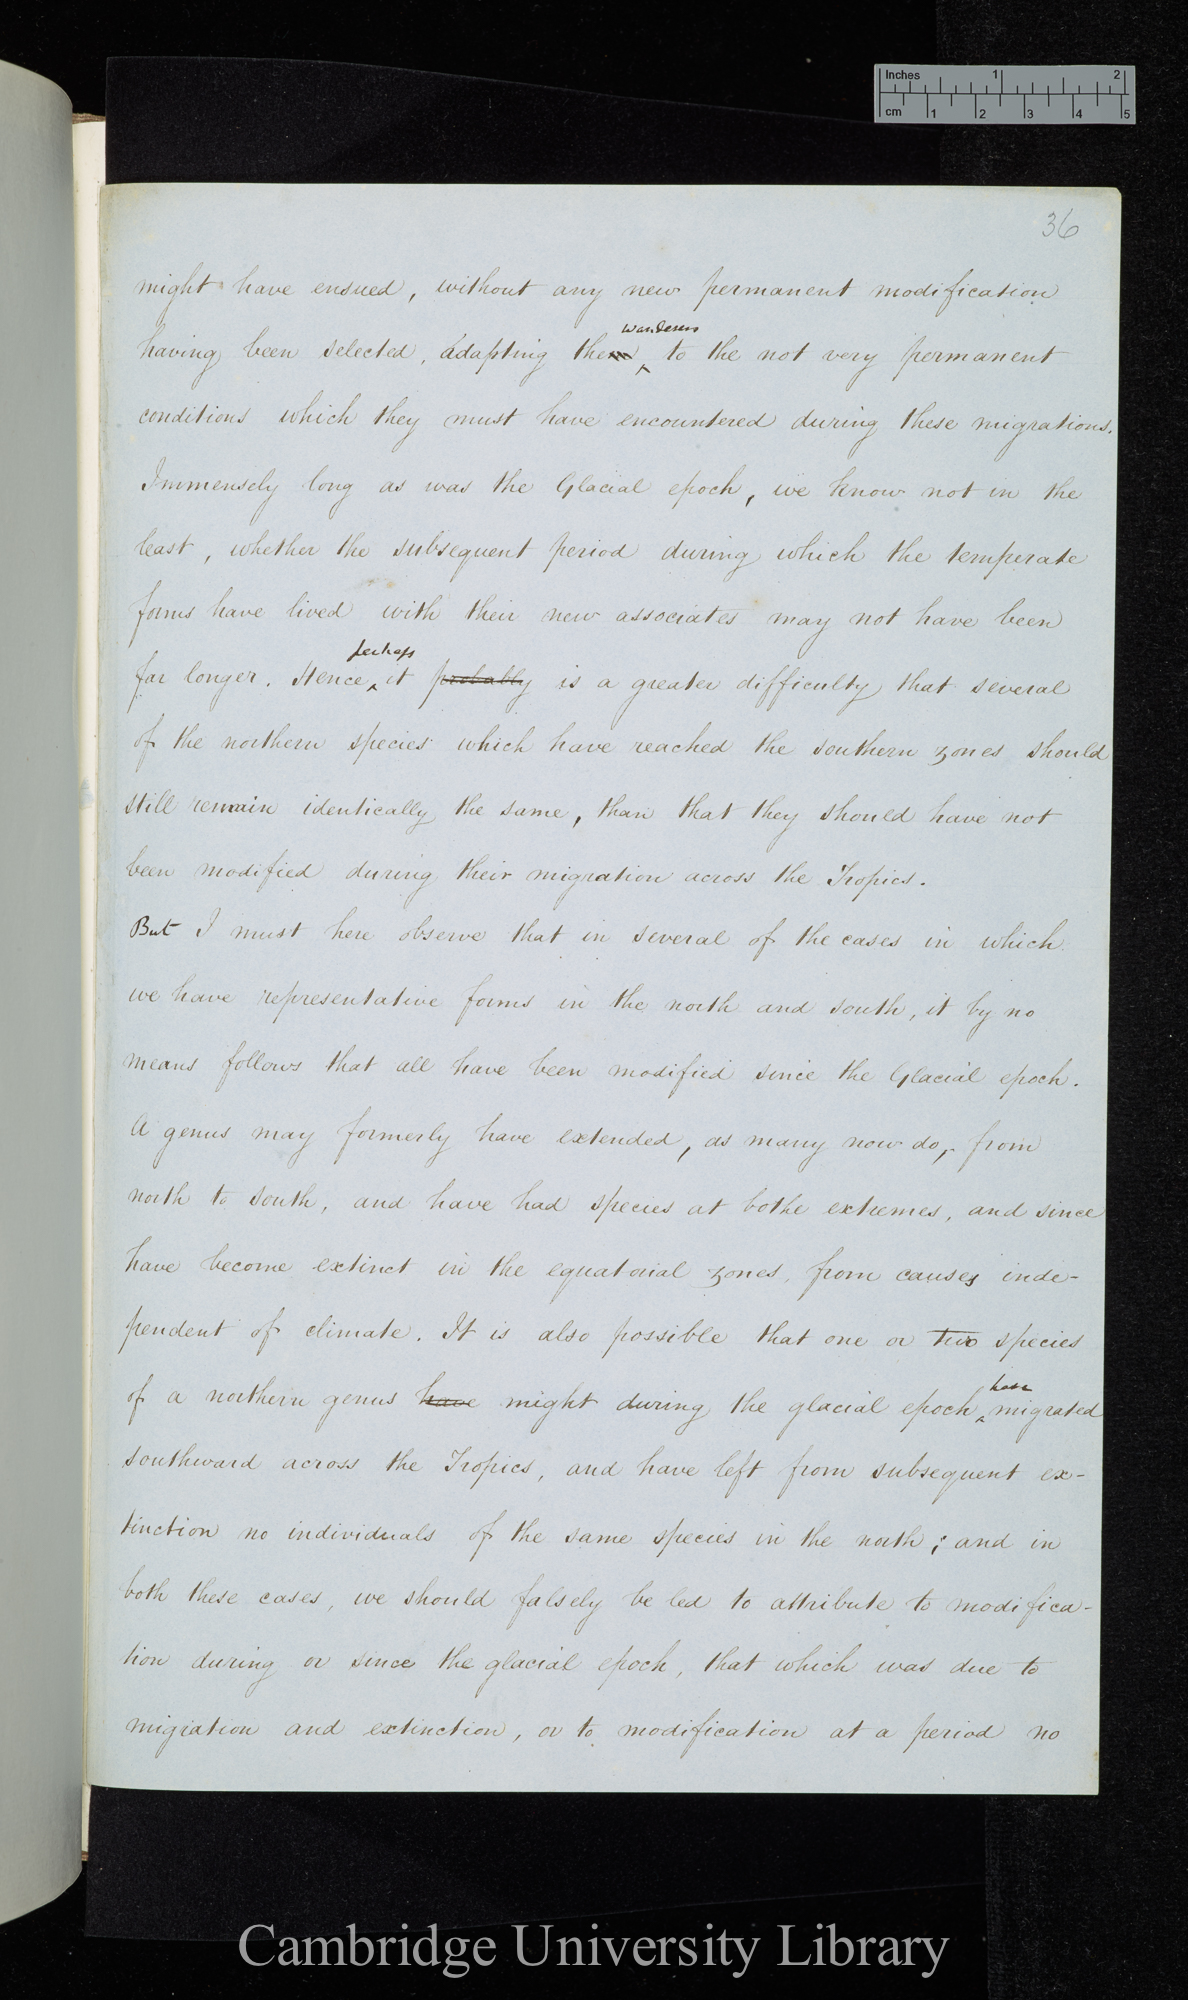 Inches 1 2
cm 1 2 3 4 5
36
might have ensued, without any new permanent modification
wanderers
having been selected, adapting them to the not very permanent
conditions which they must have encountered during these migrations.
Immensely long as was the Glacial epoch, we know not in the
least, whether the subsequent period during which the temperate
forms have lived with their new associates may not have been
perhaps
far longer. Hence it probably is a greater difficulty that several
of the northern species which have reached the southern zones should
still remain identically the same, than that they should have not
been modified during their migration across the Tropics.
But I must here observe that in several of the cases in which
we have representative forms in the north and south, it by no
means follows that all have been modified since the Glacial epoch.
A genus may formerly have extended, as many now do, from
north to south, and have had species at bothe extremes, and since
have become extinct in the equatorial zones, from causes inde-
pendent of climate. It is also possible that one or two species
have
of a northern genus have might during the glacial epoch migrated
southward across the Tropics, and have left from subsequent ex-
tinction no individuals of the same species in the north; and in
both these cases, we should falsely be led to attribute to modifica-
tion during or since the glacial epoch, that which was due to
migration and extinction, or to modification at a period no
Cambridge University Library